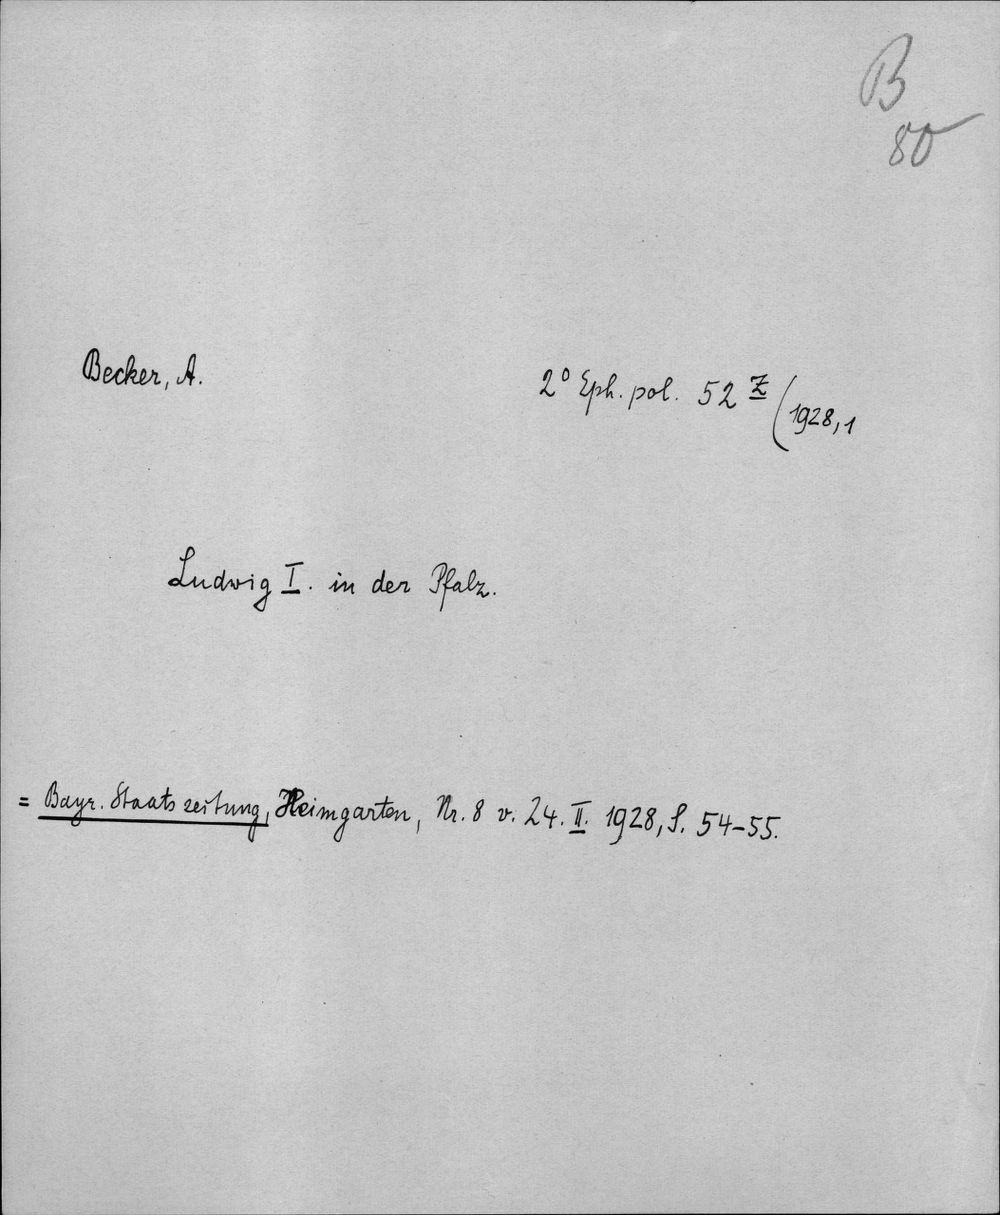 B
80
Becker, A.
2° Eph. pol. 52 z (1928,1
Ludwig I. in der Pfalz.
= Bayr. Staatszeitung, Heimgarten, Nr. 8 v. 24. II. 1928, S. 54-55.